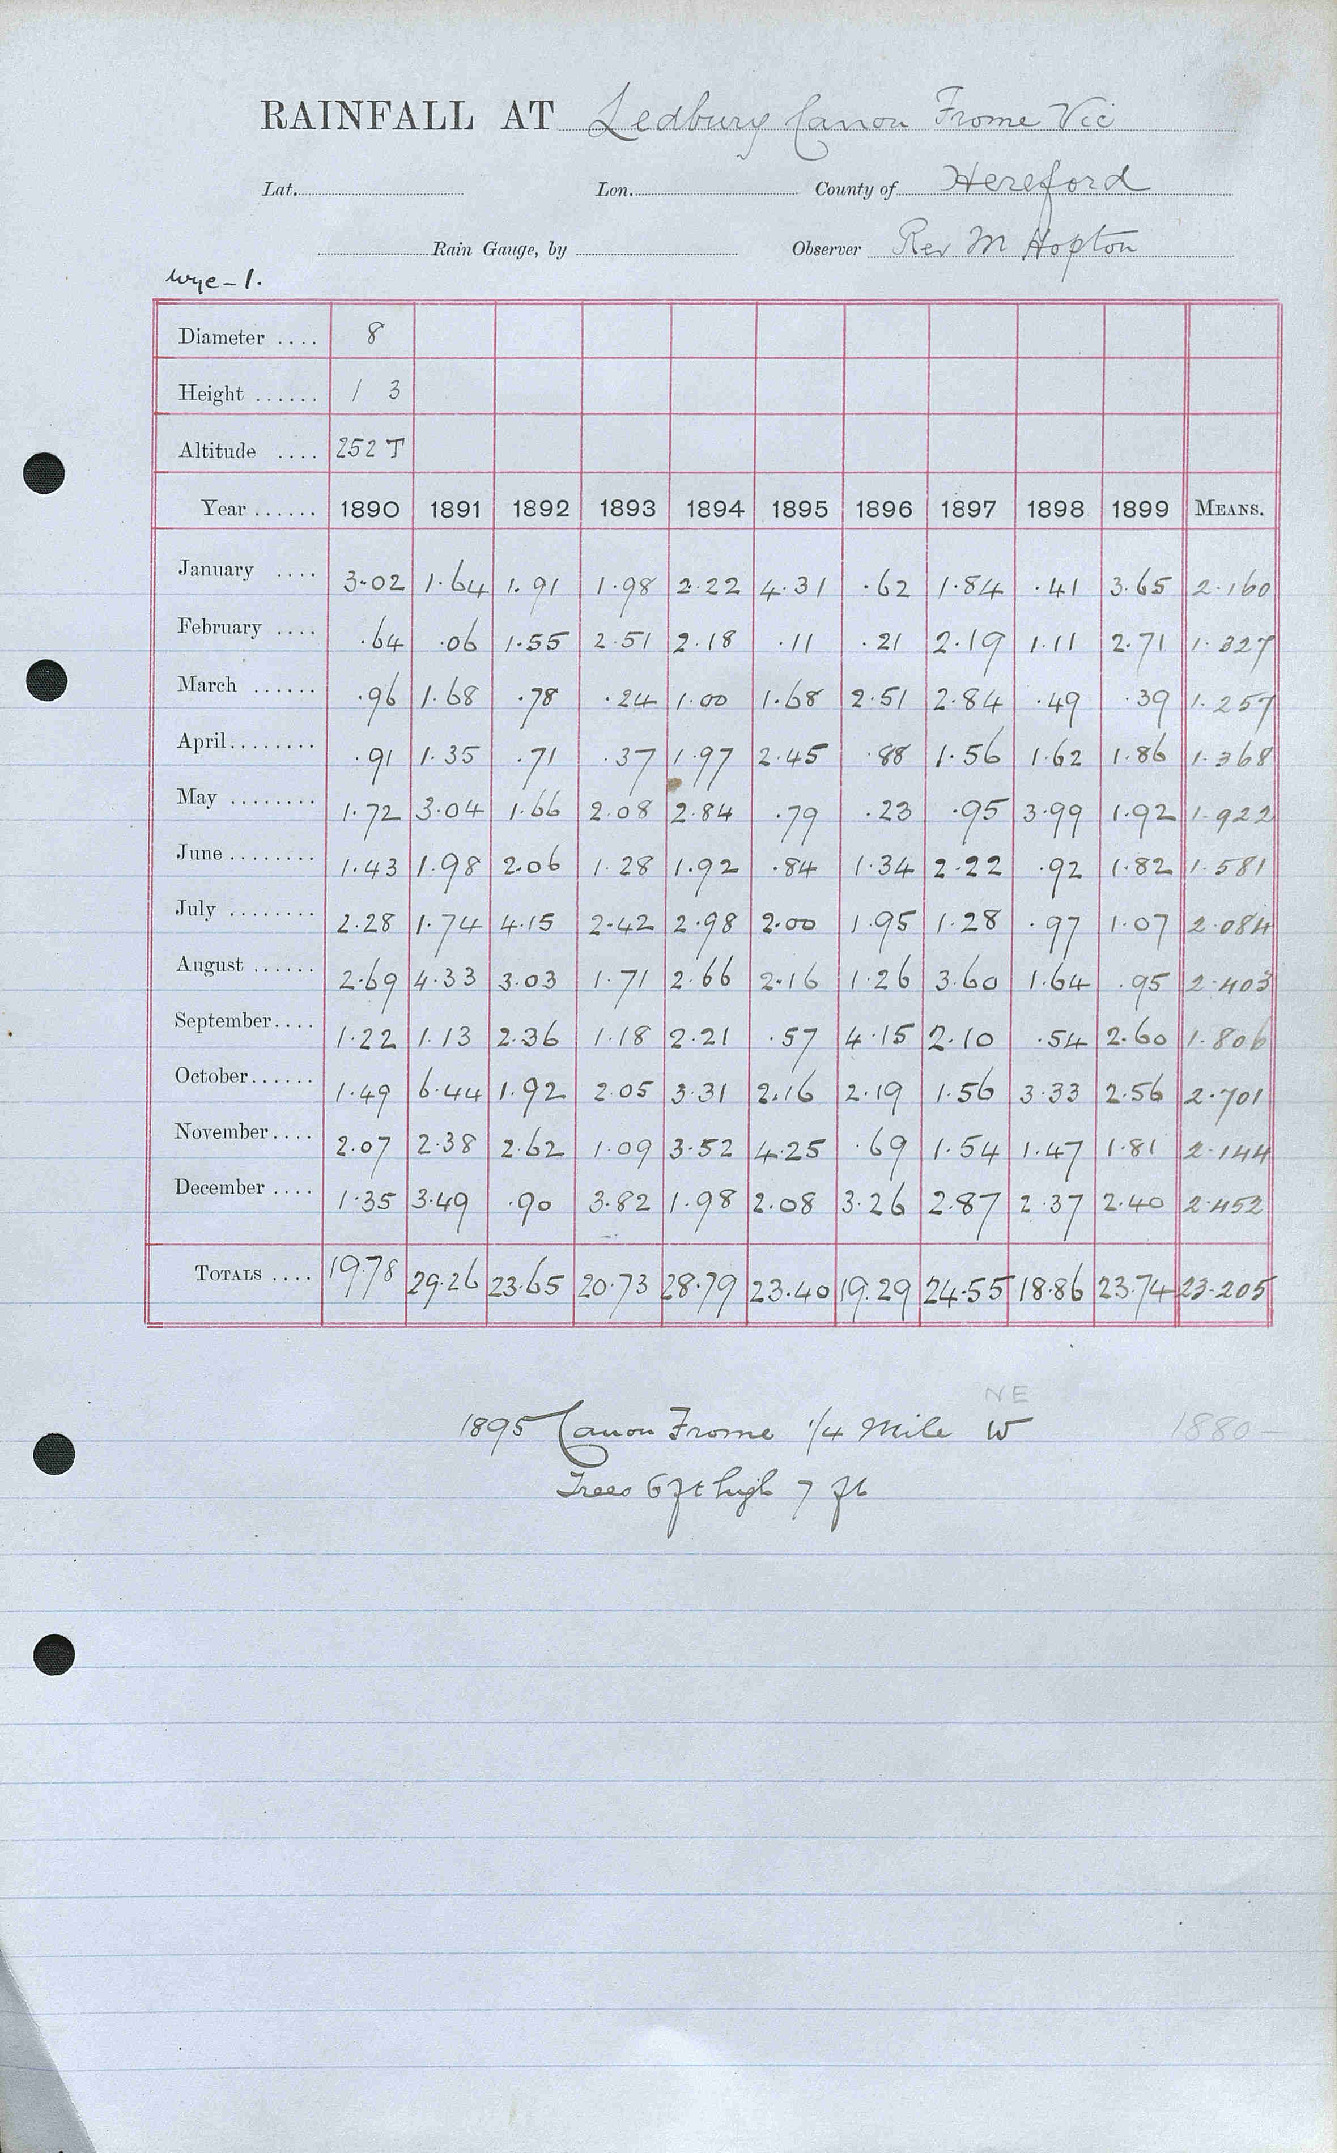 RAINFALL AT Ledbury Canon Frome Vic
Lat. Lon. County of Hereford
Rain Gauge, by Observer Rev M Hopton
Wye-1.
Diameter .... 8
Height ...... 1 3
Altitude .... 252 T
Year ...... 1890 1891 1892 1893 1894 1895 1896 1897 1898 1899 MEANS.
January .... 3.02 1.64 1.91 1.98 2.22 4.31 .62 1.84 .41 3.65 2.160
February .... .64 .06 1.55 2.51 2.18 .11 .21 2.19 1.11 2.71 1.327
March ...... .96 1.68 .78 .24 1.00 1.68 2.51 2.84 .49 .39 1.257
April........ .91 1.35 .71 .37 1.97 2.45 .88 1.56 1.62 1.86 1.368
May ........ 1.72 3.04 1.66 2.08 2.84 .79 .23 .95 3.99 1.92 1.922
June........ 1.43 1.98 2.06 1.28 1.92 .84 1.34 2.22 .92 1.82 1.581
July ........ 2.28 1.74 4.15 2.42 2.98 2.00 1.95 1.28 .97 1.07 2.084
August ...... 2.69 4.33 3.03 1.71 2.66 2.16 1.26 3.60 1.64 .95 2.403
September.... 1.22 1.13 2.36 1.18 2.21 .57 4.15 2.10 .54 2.60 1.806
October...... 1.49 6.44 1.92 2.05 3.31 2.16 2.19 1.56 3.33 2.56 2.701
November.... 2.07 2.38 2.62 1.09 3.52 4.25 .69 1.54 1.47 1.81 2.144
December .... 1.35 3.49 .90 3.82 1.98 2.08 3.26 2.87 2.37 2.40 2.452
TOTALS .... 19.78 29.26 23.65 20.73 28.79 23.40 19.29 24.55 18.86 23.74 23.205
NE
1895 Canon Frome 1/4 Mile W 1880-
Trees 6 ft high 7 ft